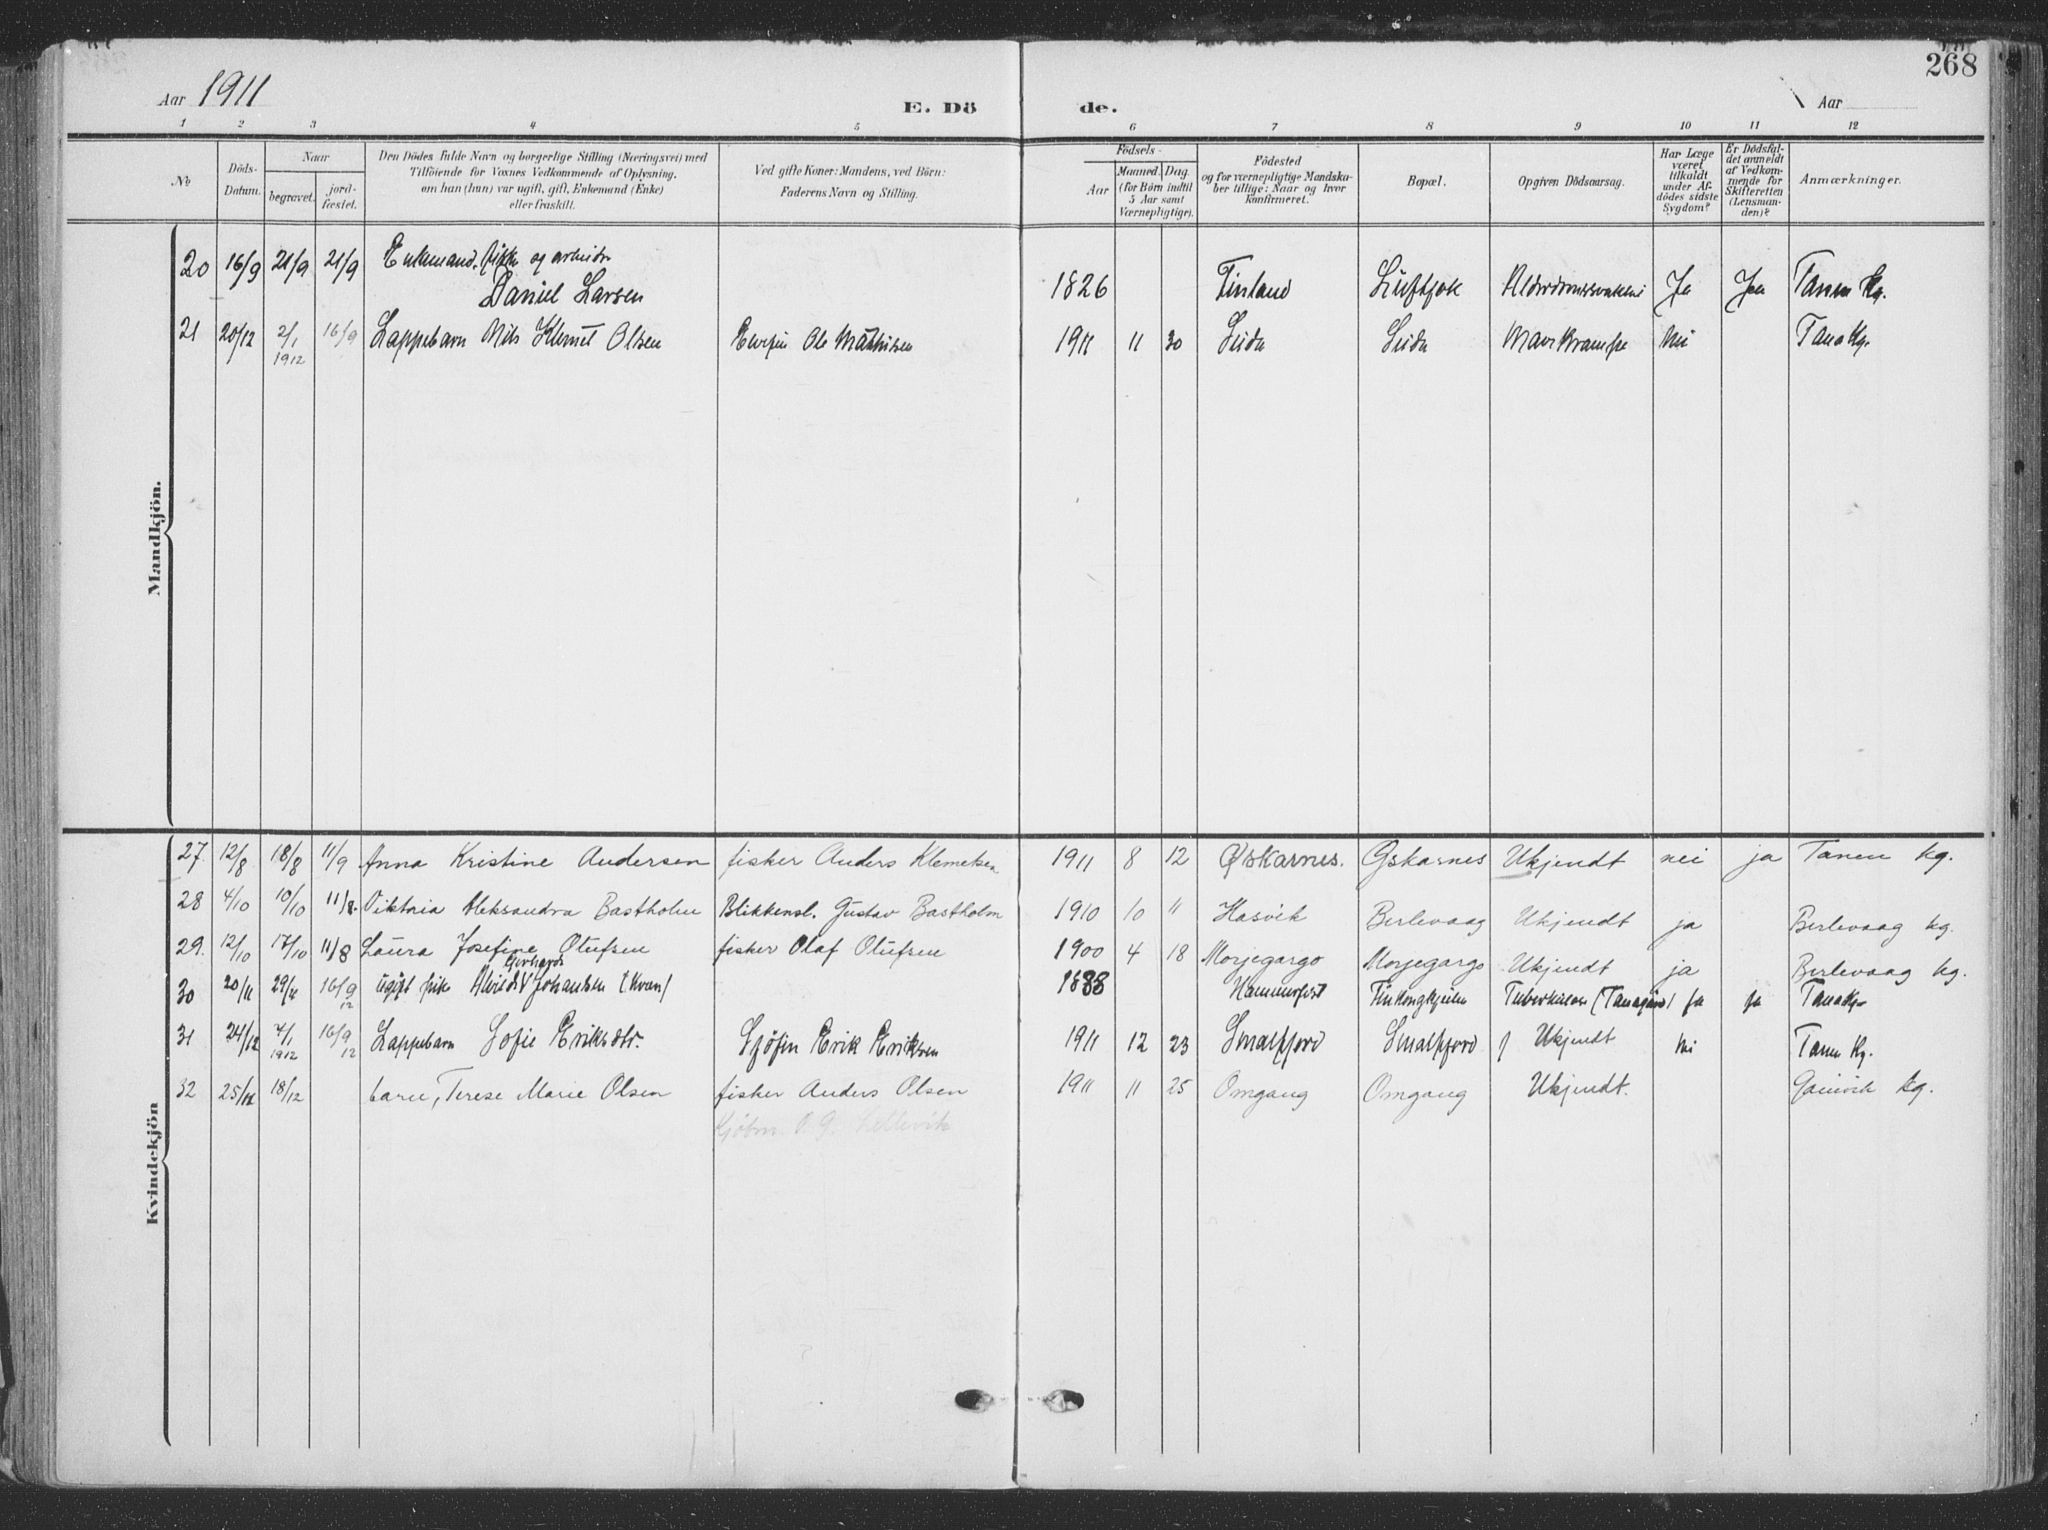 268
Aar 1911
E. Dö
de.
Aar
1 2 3 4 5 6 7 8 9 10 11 12
No
Döds-
Datum.
Naar
begravet.
jord-
fæstet.
Den Dödes fulde Navn og borgerlige Stilling (Næringsvei) med
Tilföiende for Voxnes Vedkommende af Oplysning,
om han (hun) var ugift, gift, Enkemand (Enke)
eller fraskilt.
Ved gifte Koner: Mandens, ved Börn:
Faderens Navn og Stilling.
Födsels-
Aar
Maaned. Dag.
(for Börn indtil
5 Aar samt
Værnepligtige).
Födested
og for værnepligtige Mandska-
ber tillige: Naar og hvor
konfirmeret.
Bopæl.
Opgiven Dödsaarsag.
Har Læge
været
tilkaldt
under Af-
dödes sidste
Sygdom?
Er Dödsfal-
det anmeldt
af Vedkom-
mende for
Skifteretten
(Lensman-
den)?
Anmærkninger.
Mandkjön.
20 16/9 21/9 21/9 Enkemand, og arbeider
Daniel Larsen 1826 Finland Luftjok Ja Ja Tanen Kg.
21 20/12 2/1 1912 16/9 Lappebarn Nils Klemet Olsen Ole Mathisen 1911 11 30 Seida Seida Mavekrampe Nei Tana Kg.
Kvindekjön
27. 12/8 18/8 11/9 Anna Kristine Andersen fisker Anders Klemetsen 1911 8 12 Øskarnes. Øskarnes Ukjendt nei ja Tanen kg.
28 4/10 10/10 11/8. Viktoria Aleksandra Bastholm Blikkensl. Gustav Bastholm 1910 10 " Hasvik Berlevaag Ukjendt ja Berlevaag kg.
29. 12/10 17/10 11/8 Laura Josefine Olufsen fisker Olaf Olufsen 1900 4 18 Morjegargo Morjegargo Ukjendt ja Berlevaag kg.
30 20/11 29/11 16/9 12 ugift pike Alvilde Johansen (Kvæn) 1888 Hammerfest Finkongkjeilen Tuberkulose (Tanafjord) Ja ja Tana Kg.
31 24/12 4/1 1912 16/9 12 Lappebarn Sofie Eriksdtr. Sjöfin Erik Eriksen 1911 12 23 Smalfjord Smalfjord Ukjendt Nei Tanen Kg.
32 25/11 18/12 barn, Terese Marie Olsen fisker Anders Olsen 1911 11 25 Omgang Omgang Ukjendt. Gamvik kg.